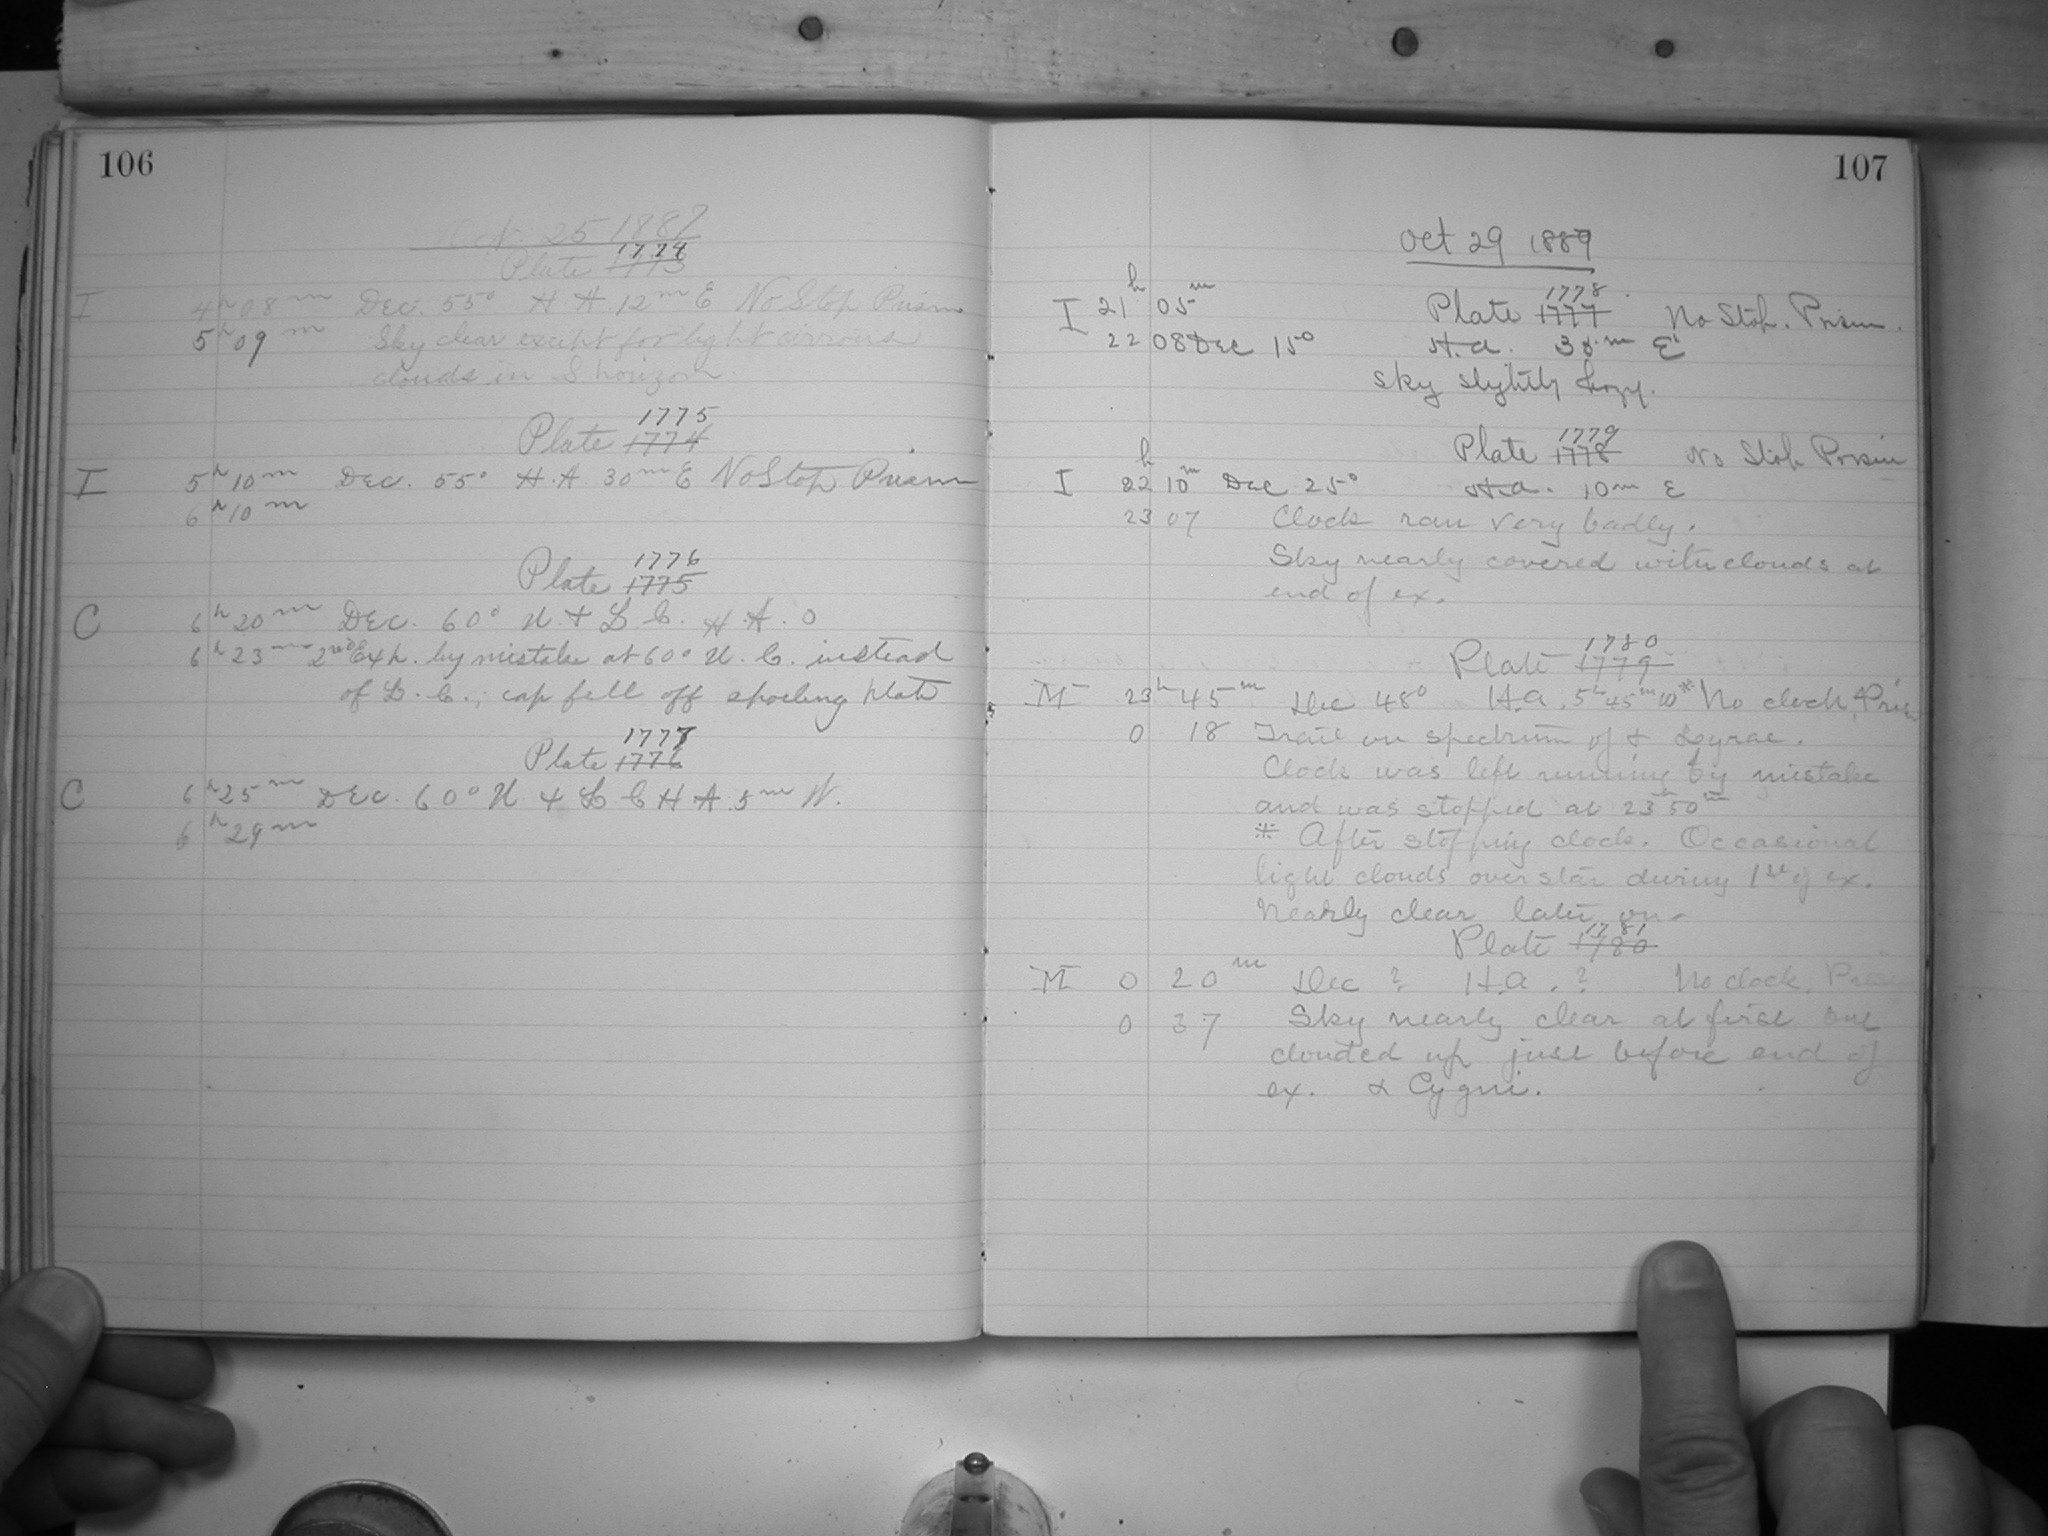 106
Oct. 25 1887
1774
Plate 1773
I 4h 08m Dec. 55° H.A. 12m E No Stop Prism
5h 09m Sky clear except for light cirrous
clouds in S. horizon.
1775
Plate 1774
I 5h 10m Dec. 55° H.A. 30m E No Stop Prism
6h 10m
1776
Plate 1775
C 6h 20m Dec. 60° U. + L. C. H.A. 0
6h 23m 2nd Exp. by mistake at 60° U. C. instead
of L. C.; cap fell off spoiling plate
1777
Plate 1776
C 6h 25m Dec. 60° U. + L C H A. 5m W.
6h 29m
107
Oct 29 1889
1778.
I 21h 05m Plate 1777 No Stop. Prism.
22 08 Dec 15° H.a. 38m E
Sky slightly hazy.
1779
Plate 1778 No Stop Prism
I 22h 10m Dec 25° H.a. 10m E
23 07 Clock ran very badly.
Sky nearly covered with clouds at
end of ex.
1780
Plate 1779
M 23h 45m Dec 48° H.a. 5h 45m W* No clock, Pris
0 18 Trail on spectrum of α Lyrae.
Clock was left running by mistake
and was stopped at 23h 50m
* After stopping clock. Occasional
light clouds over star during 1st of ex.
Nearly clear later on-
1781
Plate 1780
M 0 20m Dec ? H.a. ? No clock. Prism
0 37 Sky nearly clear at first but
clouded up just before end of
ex. α Cygni.